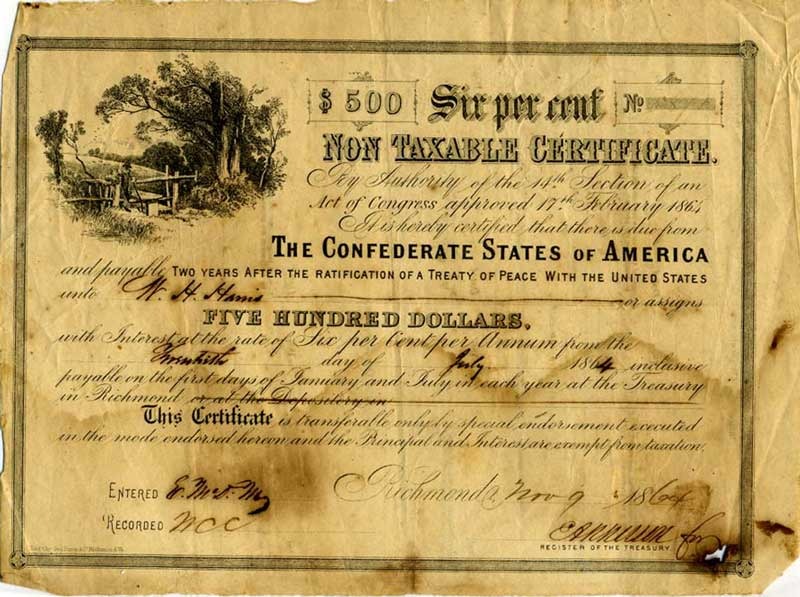 $ 500 Six per cent No
NON TAXABLE CERTIFICATE.
By Authority of the 14th Section of an
Act of Congress approved 17th February 1864
It is hereby certified that there is due from
THE CONFEDERATE STATES OF AMERICA
and payable TWO YEARS AFTER THE RATIFICATION OF A TREATY OF PEACE WITH THE UNITED STATES
unto W. H. Harris or assigns
FIVE HUNDRED DOLLARS,
with Interest at the rate of Six per Cent per Annum from the
Twentieth day of July 1864 inclusive
payable on the first days of January and July in each year at the Treasury
in Richmond or at the Depository in
This Certificate is transferable only by special endorsement executed
in the mode endorsed hereon and the Principal and Interest are exempt from taxation.
ENTERED
Richmond Nov 9 1864
RECORDED WCC
REGISTER OF THE TREASURY.